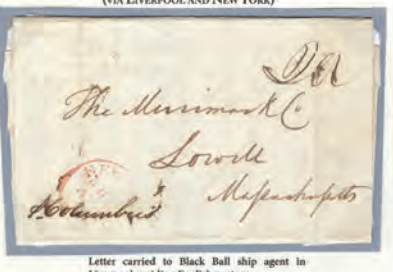 (VIA LIVERPOOL AND NEW YORK)
The Merrimack Co
Lowell
Massachusetts
p Columbus
Letter carried to Black Ball ship agent in